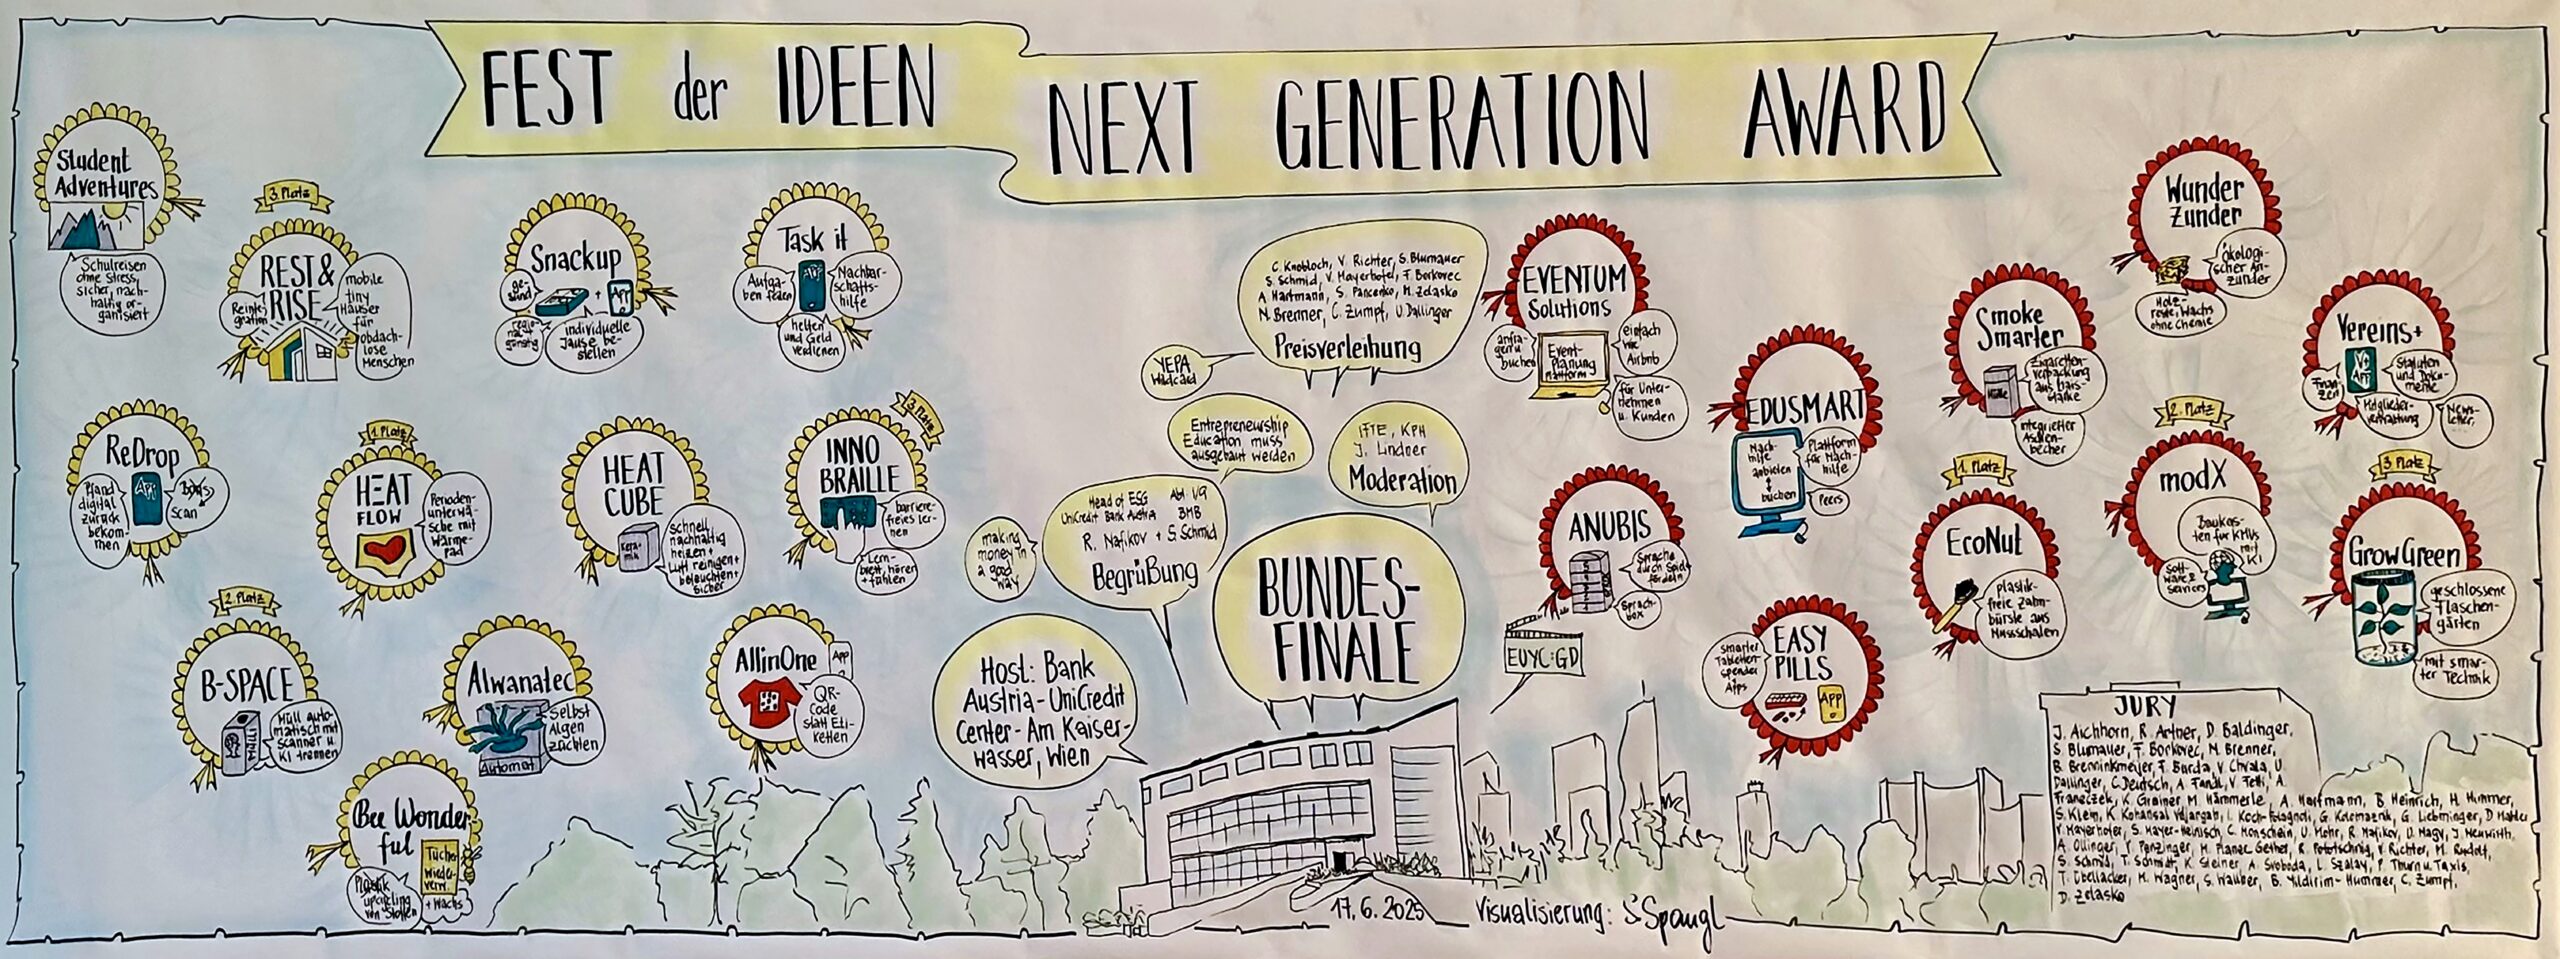 FEST der IDEEN
NEXT GENERATION AWARD
Student
Adventures
Schulreisen
ohne Stress,
sicher, nach-
haltig or-
ganisiert
3. Platz
REST &
RISE
Reinte-
gration
mobile
tiny
Häuser
für
obdach-
lose
Menschen
Snackup
ge-
sund
+
App
regio-
nal
günstig
individuelle
Jause be-
stellen
Task it
App
Aufga-
ben teilen
Nachbar-
schafts-
hilfe
helfen
und Geld
verdienen
ReDrop
App
Pfand
digital
zurück
bekom-
men
Bons
Scan
1. Platz
HEAT
FLOW
Perioden-
unterwä-
sche mit
Wärme-
pad
HEAT
CUBE
Kera-
mik
schnell
nachhaltig
heizen +
Luft reinigen +
beleuchten +
sicher
3. Platz
INNO
BRAILLE
barriere-
freies Ler-
nen
Lern-
brett, hören
+ fühlen
2. Platz
B-SPACE
MÜLL
Müll auto-
matisch mit
Scanner u.
KI trennen
Alwanatec
Automat
Selbst
Algen
züchten
AllinOne
App
QR-
Code
statt Eti-
ketten
Bee Wonder-
ful
Tücher
wieder-
verw.
+ Wachs
Plastik
upcycling
von Stoffen
C. Knobloch, V. Richter, S. Blumauer
S. Schmid, V. Mayerhofer, F. Borkovec
A. Hartmann, S. Pancenko, M. Zelasko
N. Brenner, C. Zumpf, U. Dallinger
Preisverleihung
YEPA
Wildcard
Entrepreneurship
Education muss
ausgebaut werden
IFTE, KPH
J. Lindner
Moderation
Head of ESG Abt I/9
UniCredit Bank Austria BMB
R. Nafikov + S. Schmid
Begrüßung
making
money in
a good
way
BUNDES-
FINALE
Host: Bank
Austria-UniCredit
Center-Am Kaiser-
wasser, Wien
EVENTUM
Solutions
Event-
Planung
Plattform
anfra-
gen u.
buchen
einfach
wie
Airbnb
für Unter-
nehmen
u. Kunden
EDUSMART
Nach-
hilfe
anbieten
↕
buchen
Plattform
für Nach-
hilfe
Peers
ANUBIS
Sprache
durch Spiel
fördern
Sprach-
box
EUYC:GD
EASY
PILLS
smarter
Tabletten-
spender
+ App
APP
Smoke
Smarter
Hülle
Zigaretten-
verpackung
aus Mais-
stärke
integrierter
Aschen-
becher
Wunder
Zunder
ökologi-
scher An-
zünder
Holz-
reste, Wachs
ohne Chemie
Vereins+
V+
App
Statuten
und Doku-
mente
Finan-
zen
Mitglieder-
verwaltung
News-
letter,
1. Platz
EcoNut
plastik-
freie Zahn-
bürste aus
Nussschalen
2. Platz
modX
Baukas-
ten für KMUs
mit
KI
Soft-
ware &
Services
3. Platz
GrowGreen
geschlossene
Flaschen-
gärten
mit smar-
ter Technik
JURY
J. Aichhorn, R. Artner, D. Baldinger,
S. Blumauer, F. Borkovec, N. Brenner,
B. Brenninkmeijer, F. Burda, V. Chvala, U.
Dallinger, C. Deutsch, A. Fandl, V. Fetti, A.
Franeczek, K. Greiner, M. Hämmerle, A. Hartmann, B. Heinrich, H. Himmer,
S. Klein, K. Kohansal Vajargah, I. Koch-Polagnoli, G. Kolomaznik, G. Liebminger, D. Mahler
V. Mayerhofer, S. Mayer-Heinisch, C. Monschein, U. Mohr, R. Nafikov, U. Nagy, J. Neuwirth,
A. Ollinger, Y. Panzinger, H. Planec Gether, R. Pototschnig, V. Richter, M. Rudolf,
S. Schmid, T. Schmidt, K. Steiner, A. Svoboda, L. Szalay, P. Thurn u. Taxis,
T. Ubellacker, M. Wagner, S. Wallner, B. Yildirim-Hummer, C. Zumpf,
D. Zelasko
17. 6. 2025
Visualisierung: S'Spangl